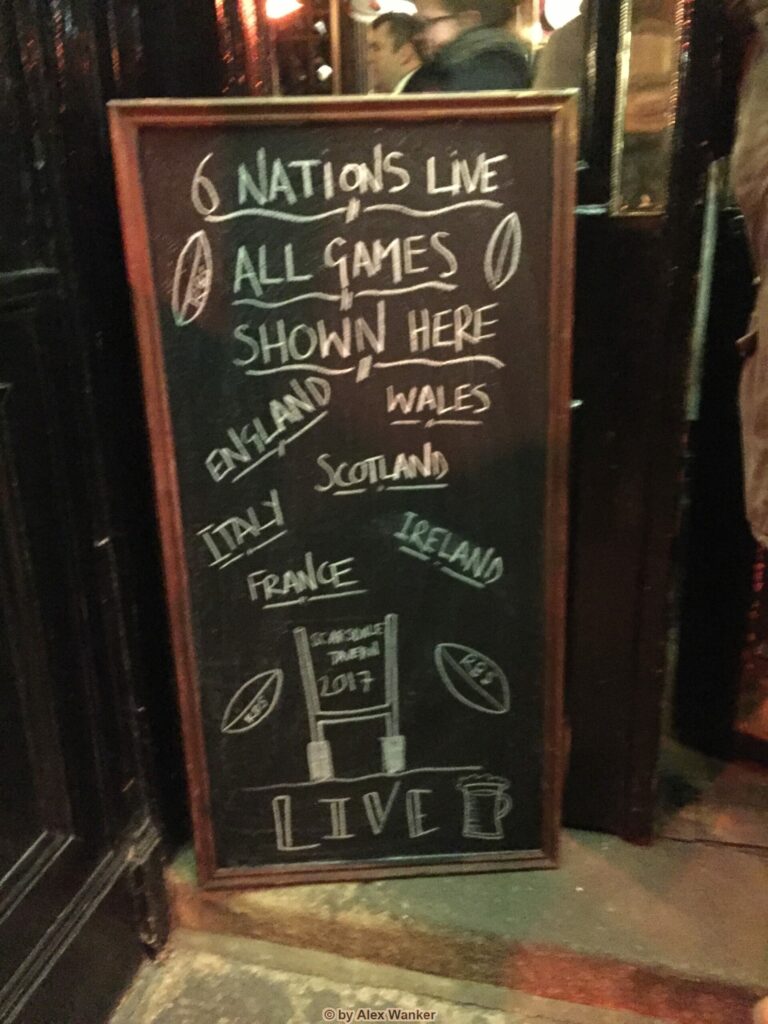 6 NATIONS LIVE
ALL GAMES
RBS
SHOWN HERE
ENGLAND
WALES
SCOTLAND
ITALY
IRELAND
FRANCE
SCARSDALE
TAVERN
2017
RBS
RBS
LIVE
© by Alex Wanker